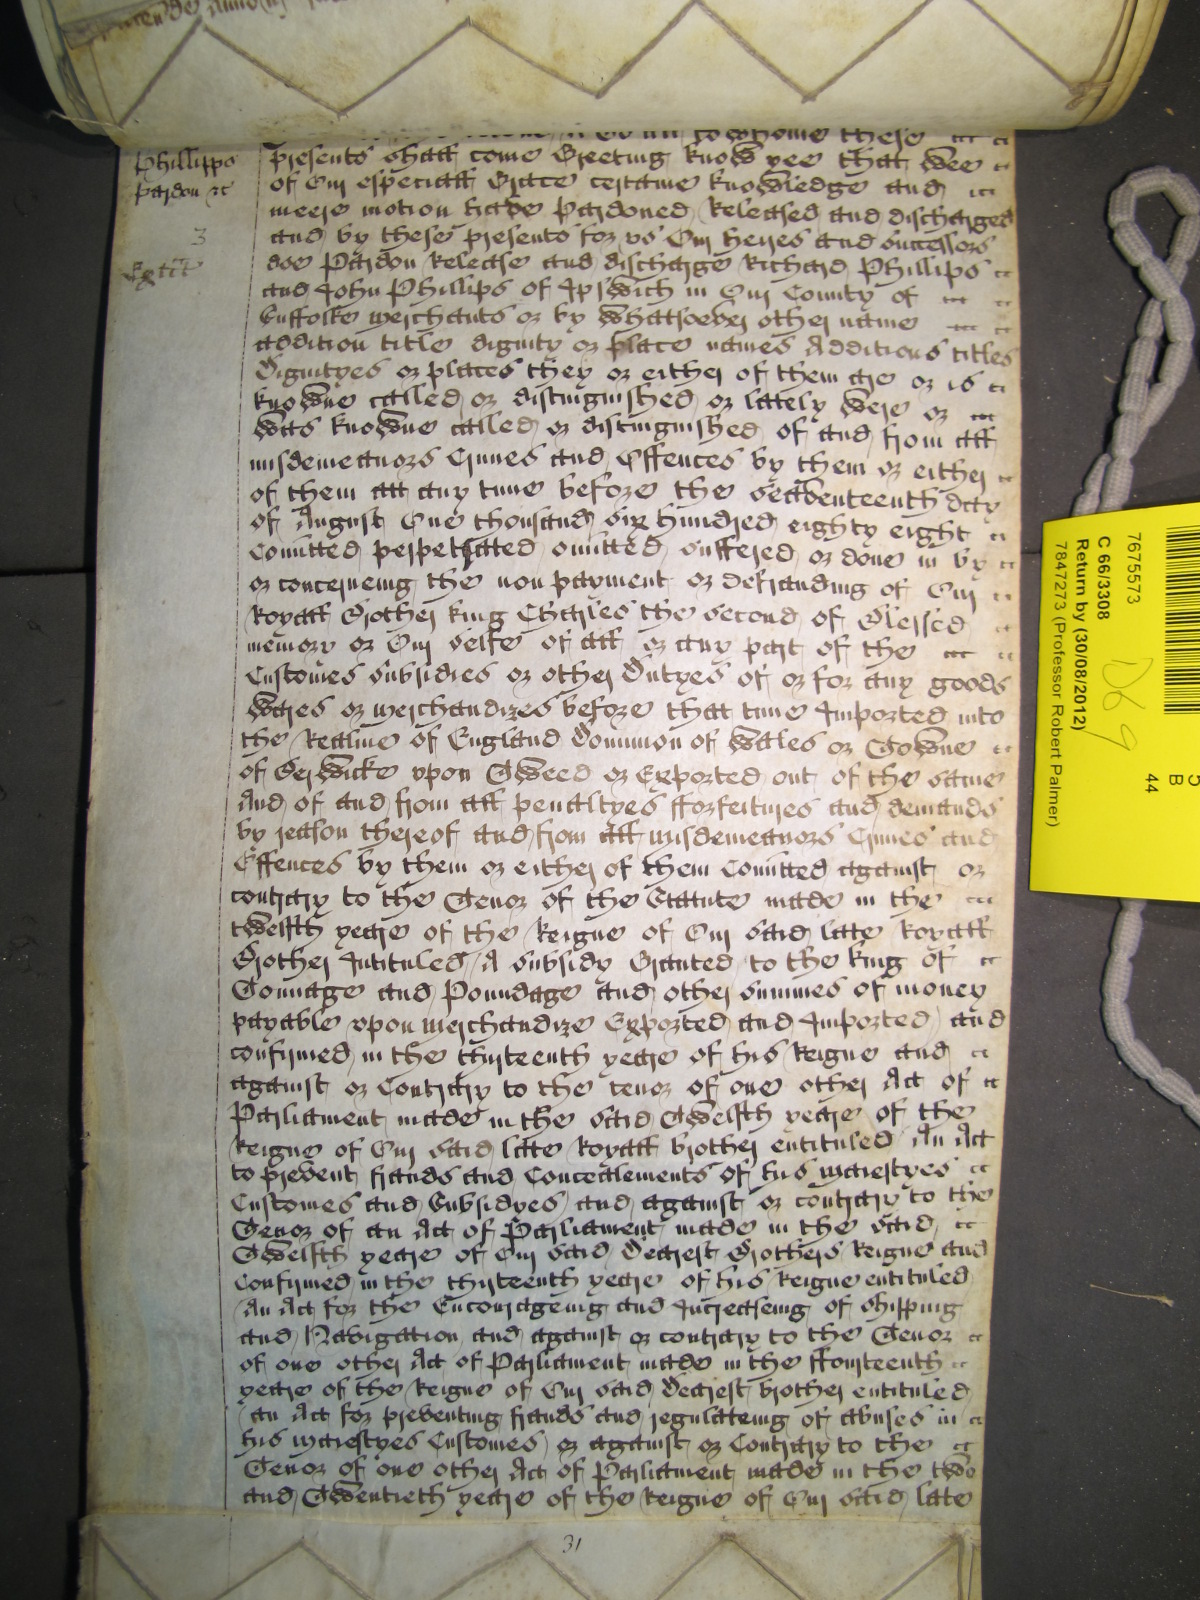 to whome these
Phillipps
pardon
3
presents shall come Greeting know yee that wee
of Our especiall Grace certaine knowledge and
meere motion have Pardoned Released and discharged
and by these presents for us Our heires and successors
doe Pardon Release and discharge Richard Phillips
and John Phillips of Ipswich in Our County of
Suffolke merchants or by whatsoever other name
addition title dignity or place names Additions titles
Dignityes or places they or either of them are or is
knowne called or distinguished or lately were or
was knowne called or distinguished of and from all
misdemeanors Crimes and Offences by them or either
of them att any time before the seaventeenth day
of August One thousand six hundred eighty eight
Comitted perpetrated omitted suffered or done in by
or concerneing the non payment or defrauding of Our
Royall Brother king Charles the second of Blessed
memory or Our selfe of all or any part of the
Customes subsidies or other Dutyes of or for any goods
wares or merchandizes before that time Imported into
the Realme of England Dominion of Wales or Towne
of Berwicke vpon Tweed or Exported out of the same
And of and from all penaltyes fforfeitures and demands
by reason thereof and from all misdemeanors Crimes and
Offences by them or either of them Comitted against or
contrary to the Tenor of the Statute made in the
twelfth yeare of the Reigne of Our said late Royall
Brother Intituled A subsidy Granted to the king of
Tonnage and Poundage and other summes of money
payable vpon merchandize Exported and Imported and
confirmed in the thirteenth yeare of his Reigne and
against or Contrary to the tenor of one other Act of
Parliament made in the said Twelfth yeare of the
Reigne of Our said late Royall brother entituled An Act
to prevent frauds and Concealements of his maiestyes
Customes and Subsidyes and against or contrary to the
Tenor of an Act of Parliament made in the said
Twelfth yeare of Our said Dearest Brothers Reigne and
Confirmed in the thirteenth yeare of his Reigne entituled
An Act for the Encourageing and Increaseing of shipping
and Navigation and against or contrary to the Tenor
of one other Act of Parliament made in the ffourteenth
yeare of the Reigne of Our said Dearest brother entituled
an Act for preventing frauds and regulateing of abuses in
his maiestyes Customes or against or Contrary to the
Tenor of one other Act of Parliament made in the two
and Twentieth yeare of the Reigne of Our said late
31
7675573
C 66/3308
Return by (30/08/2012)
7847273 (Professor Robert Palmer)
D69
44
B
5